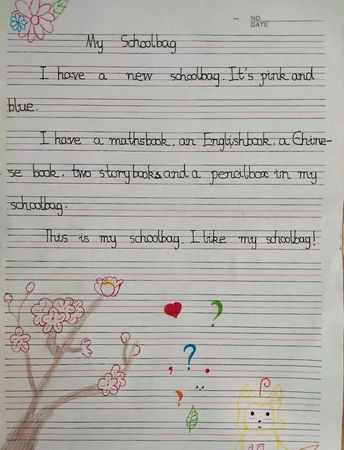 NO
DATE
My Schoolbag
I have a new schoolbag. It's pink and
blue.
I have a mathsbook, an Englishbook, a Chine-
se book, two storybooks, and a pencilbox in my
schoolbag.
This is my schoolbag. I like my schoolbag!
? 
, ?
,